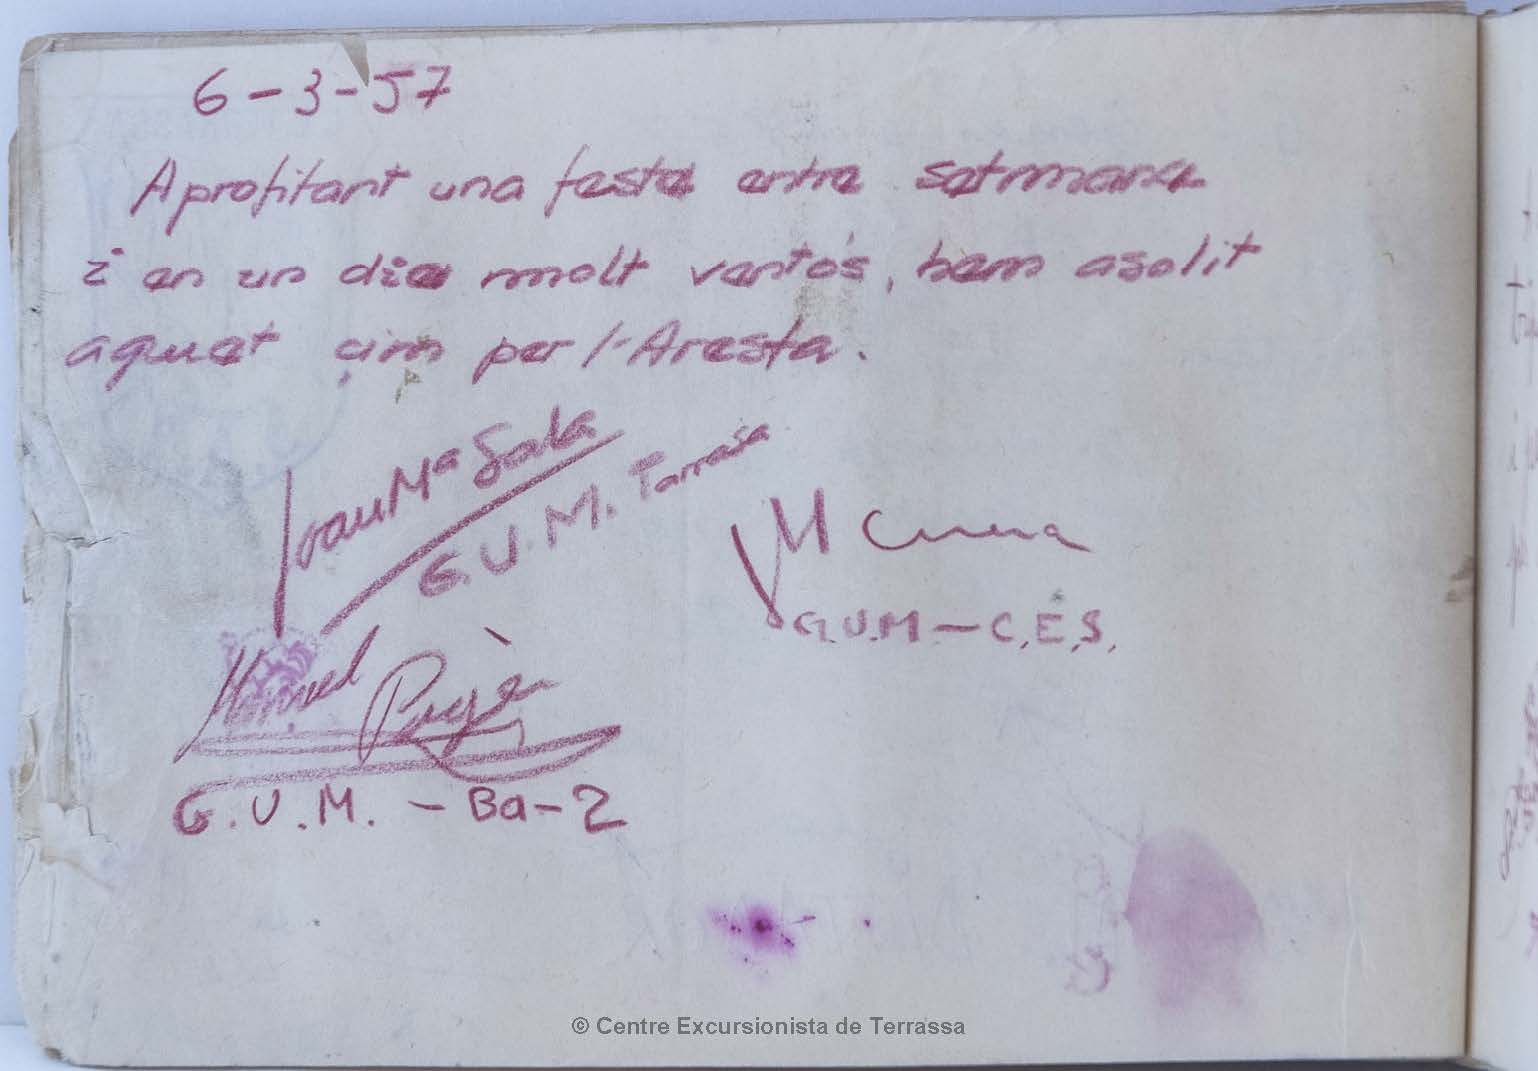 6-3-57
Aprofitant una festa entre setmana
i en un dia molt ventós, hem asolit
aquet çim per l'Aresta.
Joan Mª Sala
G.U.M. Tarrasa
M Cunera
G.U.M-C.E.S.
Manuel Pugès
G.U.M. - Ba-2
© Centre Excursionista de Terrassa